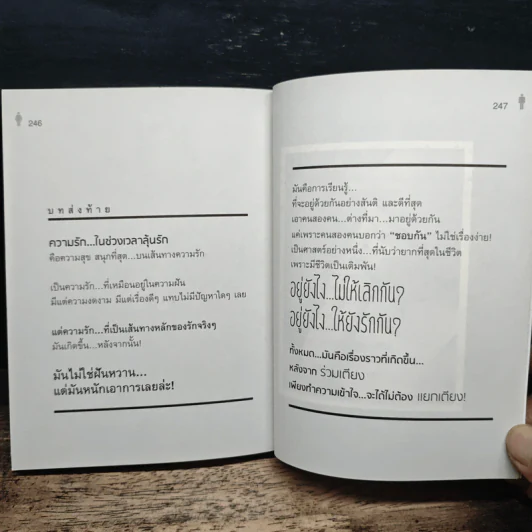 246
บทส่งท้าย
ความรัก...ในช่วงเวลาลุ้นรัก
คือความสุข สนุกที่สุด...บนเส้นทางความรัก
เป็นความรัก...ที่เหมือนอยู่ในความฝัน
มีแต่ความงดงาม มีแต่เรื่องดีๆ แทบไม่มีปัญหาใดๆ เลย
แต่ความรัก...ที่เป็นเส้นทางหลักของรักจริงๆ
มันเกิดขึ้น...หลังจากนั้น!
มันไม่ใช่ฝันหวาน...
แต่มันหนักเอาการเลยล่ะ!
247
มันคือการเรียนรู้...
ที่จะอยู่ด้วยกันอย่างสันติ และดีที่สุด
เอาคนสองคน...ต่างที่มา...มาอยู่ด้วยกัน
แค่เพราะคนสองคนบอกว่า "ชอบกัน" ไม่ใช่เรื่องง่าย!
เป็นศาสตร์อย่างหนึ่ง...ที่นับว่ายากที่สุดในชีวิต
เพราะมีชีวิตเป็นเดิมพัน!
อยู่ยังไง...ไม่ให้เลิกกัน?
อยู่ยังไง...ให้ยังรักกัน?
ทั้งหมด...มันคือเรื่องราวที่เกิดขึ้น...
หลังจาก ร่วมเตียง
เพียงทำความเข้าใจ...จะได้ไม่ต้อง แยกเตียง!